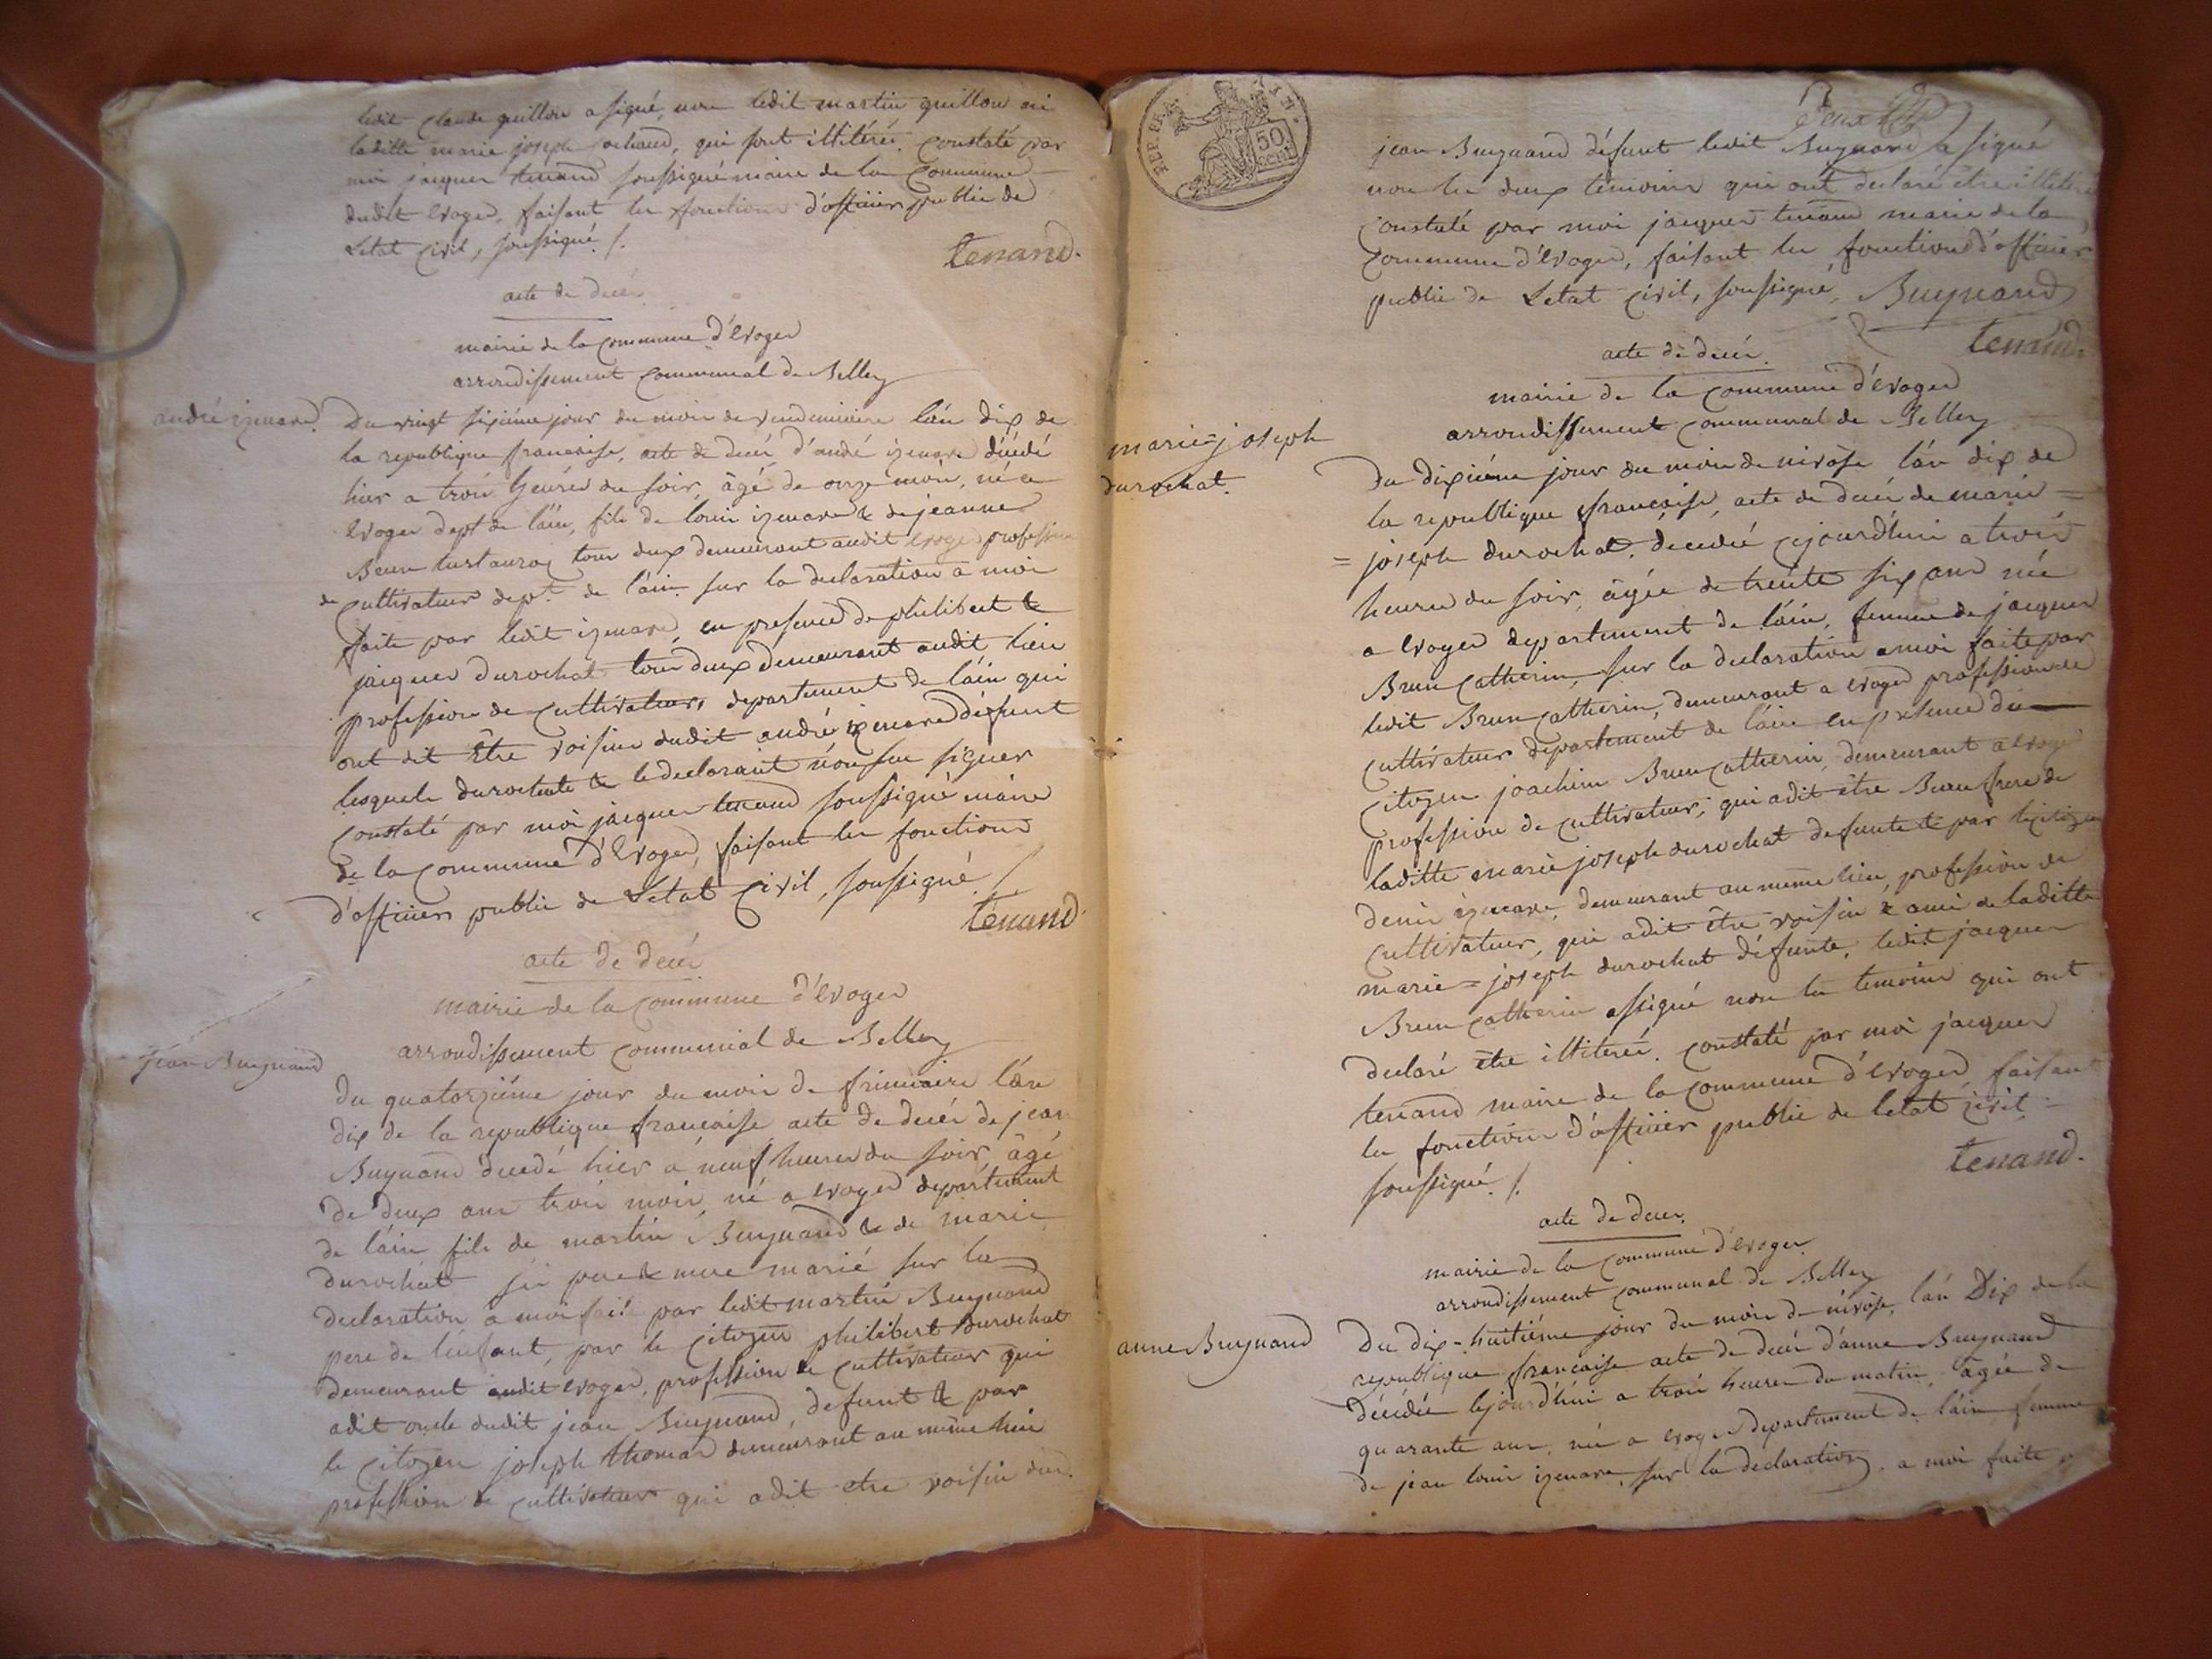 ledit claude guillon a signé, non ledit martin guillon ni
laditte marie joseph rochaud, qui sont illitéré. Constaté par
moi jacques tenand soussigné maire de la Commune
dudit Evoges, faisant les fonctions d'officier public de
Letat Civil, soussigné /.
tenand.
acte de décès
mairie de la Commune d'Evoges
arrondissement Communal de Belley
andré izenard.
Du vingt sixiéme jour du mois de vendemiaire l'an dix de
la republique francaise, acte de decés d'andré izenard décédé
hier a trois heures du soir, âgé de onze mois, né a
Evoges dept de l'ain, fils de louis izenard & de jeanne
Brun tous deux demeurant audit Evoges profession
de Cultivateur dept. de l'ain sur la declaration a moi
faite par ledit izenard, en presence de philibert &
jacques durochat tous deux demeurant audit lieu
profession de Cultivateurs departement de l'ain qui
ont dit être voisins dudit andré izenard défunt
lesquels durochats & le declarant n'on su signer
Constaté par moi jacques tenand soussigné maire
de la Commune d'Evoges, faisant les fonctions
d'officier public de Letat Civil, soussigné /
tenand
acte de decés
mairie de la Commune d'Evoges
arrondissement Communal de Belley
jean Buynand
Du quatorziéme jour du mois de frimaire l'an
dix de la republique francaise acte de decés de jean
Buynand decedé hier a neuf heures du soir âgé
de deux ans trois mois, né a Evoges departement
de l'ain fils de martin Buynand & de marie
durochat ses pere & mere marié sur la
declaration a moi faite par ledit martin Buynand
pere de l'enfant, par le Citoyen philibert durochat
demeurant audit Evoges, profession de Cultivateur qui
a dit oncle dudit jean Buynand, defunt & par
le Citoyen joseph thomas demeurant au même lieu
profession de Cultivateur qui a dit etre voisin dud.
REP. FRA.
50
CENT.
jean Buynand défunt ledit Buynand a signé
non les deux témoins qui ont declaré être illiteré
Constaté par moi jacques tenand maire de la
Commune d'Evoges, faisant les fonctions d'officier
public de Letat Civil, soussigné, Buynand
tenand
acte de decés.
mairie de la Commune d'Evoges
arrondissement Communal de Belley
marie=joseph
durochat.
Du dixiéme jour du mois de nivôse l'an dix de
la republique francaise, acte de decés de marie=
=joseph durochat, decedée cejourd'hui a trois
heures du soir, âgée de trente six ans née
a Evoges departement de l'ain, femme de jacques
Brun Catherin, sur la declaration a moi faite par
ledit Brun Catherin, demeurant a Evoges profession de
Cultivateur departement de l'ain en presence du
Citoyen joachim Brun Catherin, demeurant a Evoges
profession de Cultivateur, qui a dit être Beau frere de
laditte marie joseph durochat defunte & par le citoyen
denis izenard, demeurant au même lieu, profession de
Cultivateur, qui a dit être voisin & ami de laditte
marie=joseph durochat défunte, ledit jacques
Brun Catherin a signé non les temoins qui ont
declaré être illiterés. Constaté par moi jacques
tenand maire de la Commune d'Evoges faisant
les fonctions d'officier public de letat Civil
soussigné. /.
tenand.
acte de deces.
mairie de la Commune d'Evoges.
arrondissement Communal de Belley
anne Buynand
Du dix=huitiéme jour du mois de nivôse, l'an Dix de la
republique francaise acte de decés d'anne Buynand
décédée cejourd'hui a trois heures du matin, âgée de
quarante ans, née a Evoges departement de l'ain femme
de jean louis izenard, sur la declaration, a moi faite